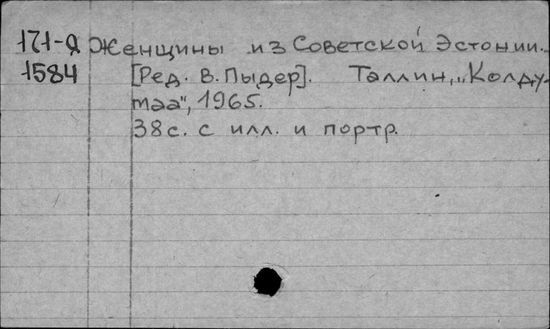 171-Я Женщины из Советской Эстонии.
1584 [Ред. В. Пыдер]. Таллин, „Колду-
маа", 1965.
38с. с илл. и портр.